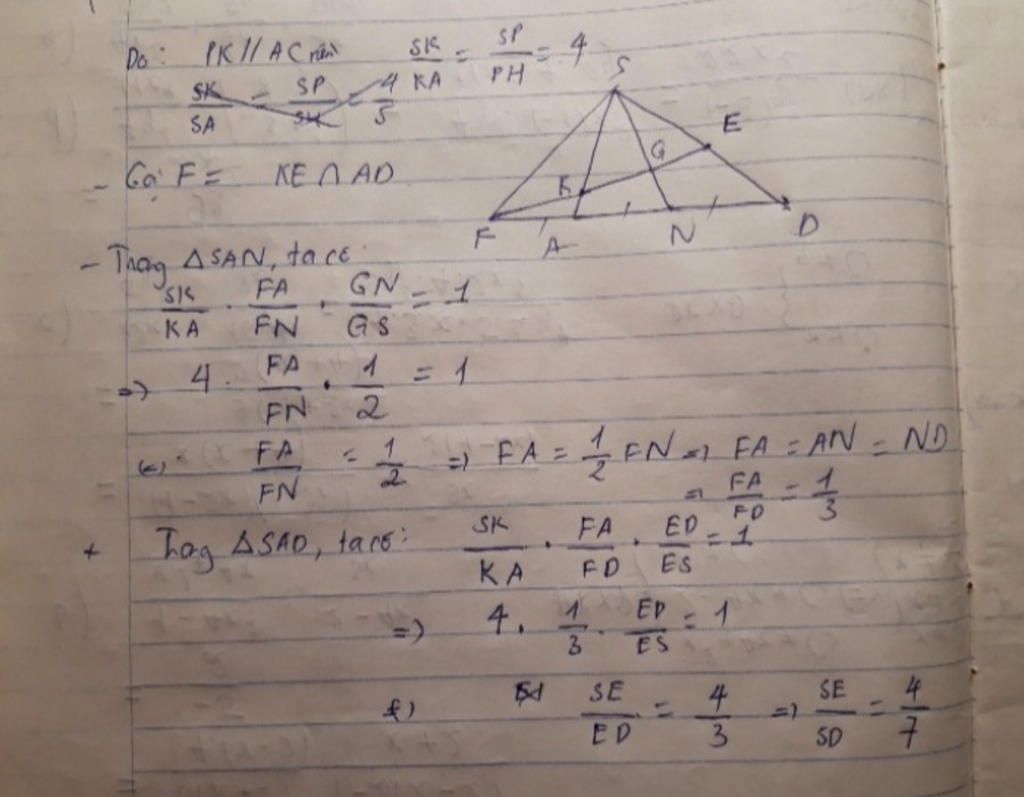 Do: PK // AC nên SK/KA = SP/PH = 4
SK/SA = SP/SH = 4/5
- Gọi F = KE ∩ AD
S
E
G
K
F A N D
- Trong △SAN, ta có:
SK/KA . FA/FN . GN/GS = 1
=> 4 . FA/FN . 1/2 = 1
(=) FA/FN = 1/2 => FA = 1/2 FN => FA = AN = ND
=> FA/FD = 1/3
+ Trong △SAD, ta có: SK/KA . FA/FD . ED/ES = 1
=> 4 . 1/3 . ED/ES = 1
SE/ED = 4/3 => SE/SD = 4/7